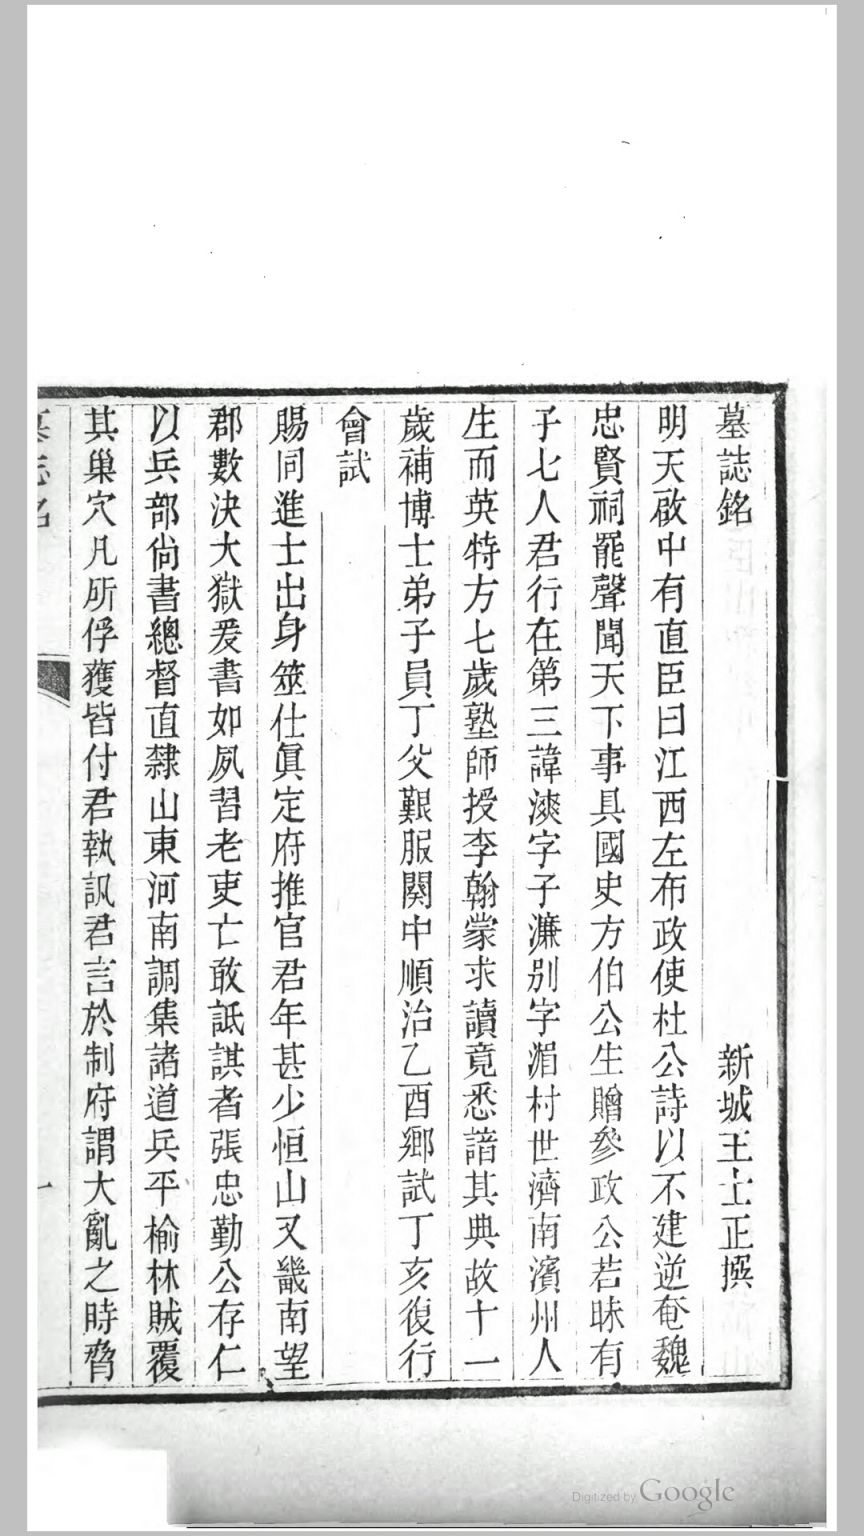 墓誌銘
新城王士正撰
明天啟中有直臣曰江西左布政使杜公詩以不建逆奄魏
忠賢祠罷聲聞天下事具國史方伯公生贈參政公若昧有
子七人君行在第三諱漺字子濂别字湄村世濟南濱州人
生而英特方七歲塾師授李翰蒙求讀竟悉諳其典故十一
歲補博士弟子員丁父艱服闋中順治乙酉鄉試丁亥復行
會試
賜同進士出身筮仕眞定府推官君年甚少恒山又畿南望
郡數決大獄爰書如夙習老吏亡敢詆諆者張忠勤公存仁
以兵部尚書總督直隸山東河南調集諸道兵平榆林賊覆
其巢穴凡所俘獲皆付君執訊君言於制府謂大亂之時脅
墓志銘
一
Digitized by Google